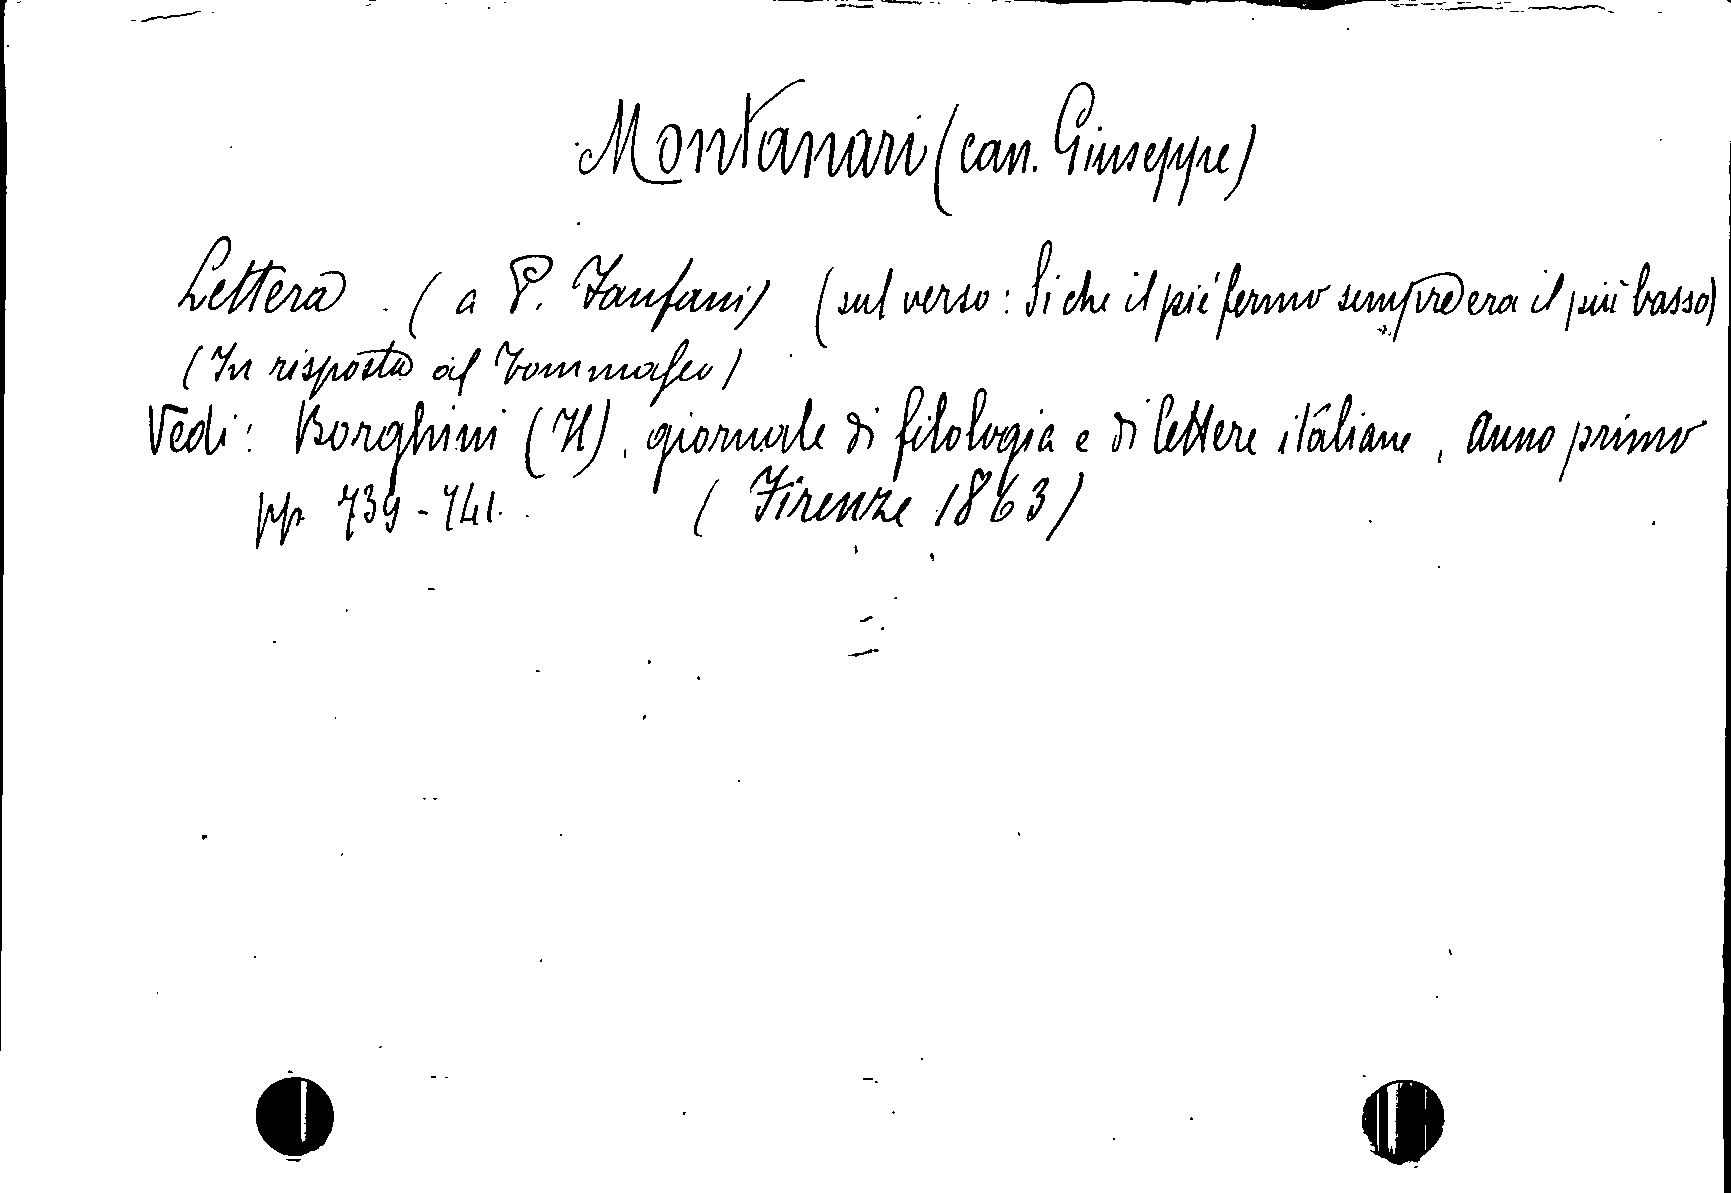 Montanari (can. Giuseppe)
Lettera (a P. Fanfani) (sul verso: Si che il piè fermo sempre era il più basso)
(In risposta al Tommaseo)
Vedi: Borghini (Il), giornale di filologia e di lettere italiane, anno primo
pp. 739-741. (Firenze 1863)